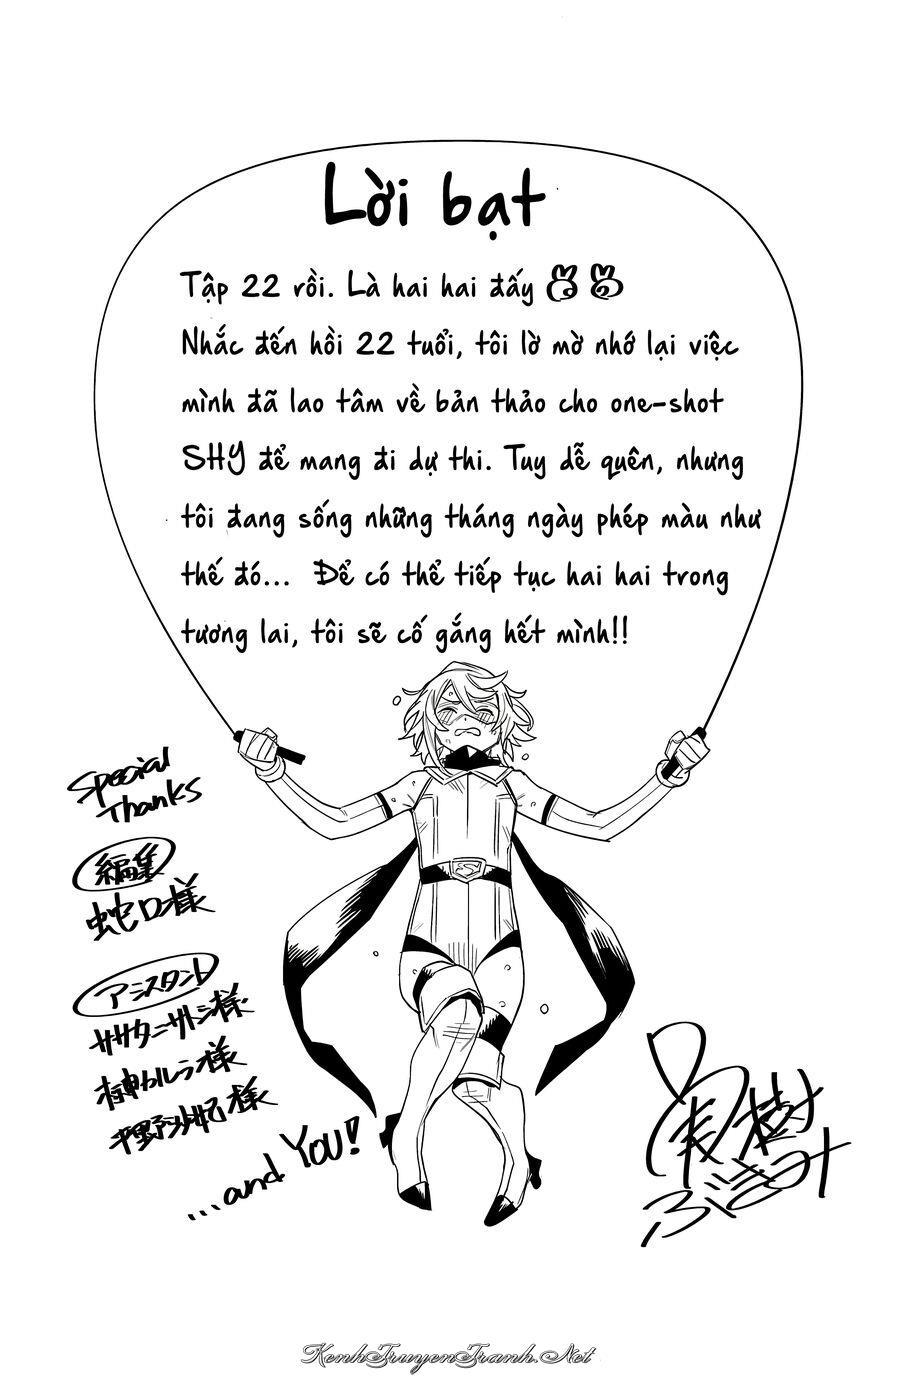 Lời bạt
Tập 22 rồi. Là hai hai đấy
Nhắc đến hồi 22 tuổi, tôi lờ mờ nhớ lại việc
mình đã lao tâm về bản thảo cho one-shot
SHY để mang đi dự thi. Tuy dễ quên, nhưng
tôi đang sống những tháng ngày phép màu như
thế đó... Để có thể tiếp tục hai hai trong
tương lai, tôi sẽ cố gắng hết mình!!
S
Special
Thanks
編集
蛇口様
アシスタント
ササタニサトシ様
カルラ様
平野 様
...and YOU!
実樹
ぶきみ
KenhTruyenTranh.Net